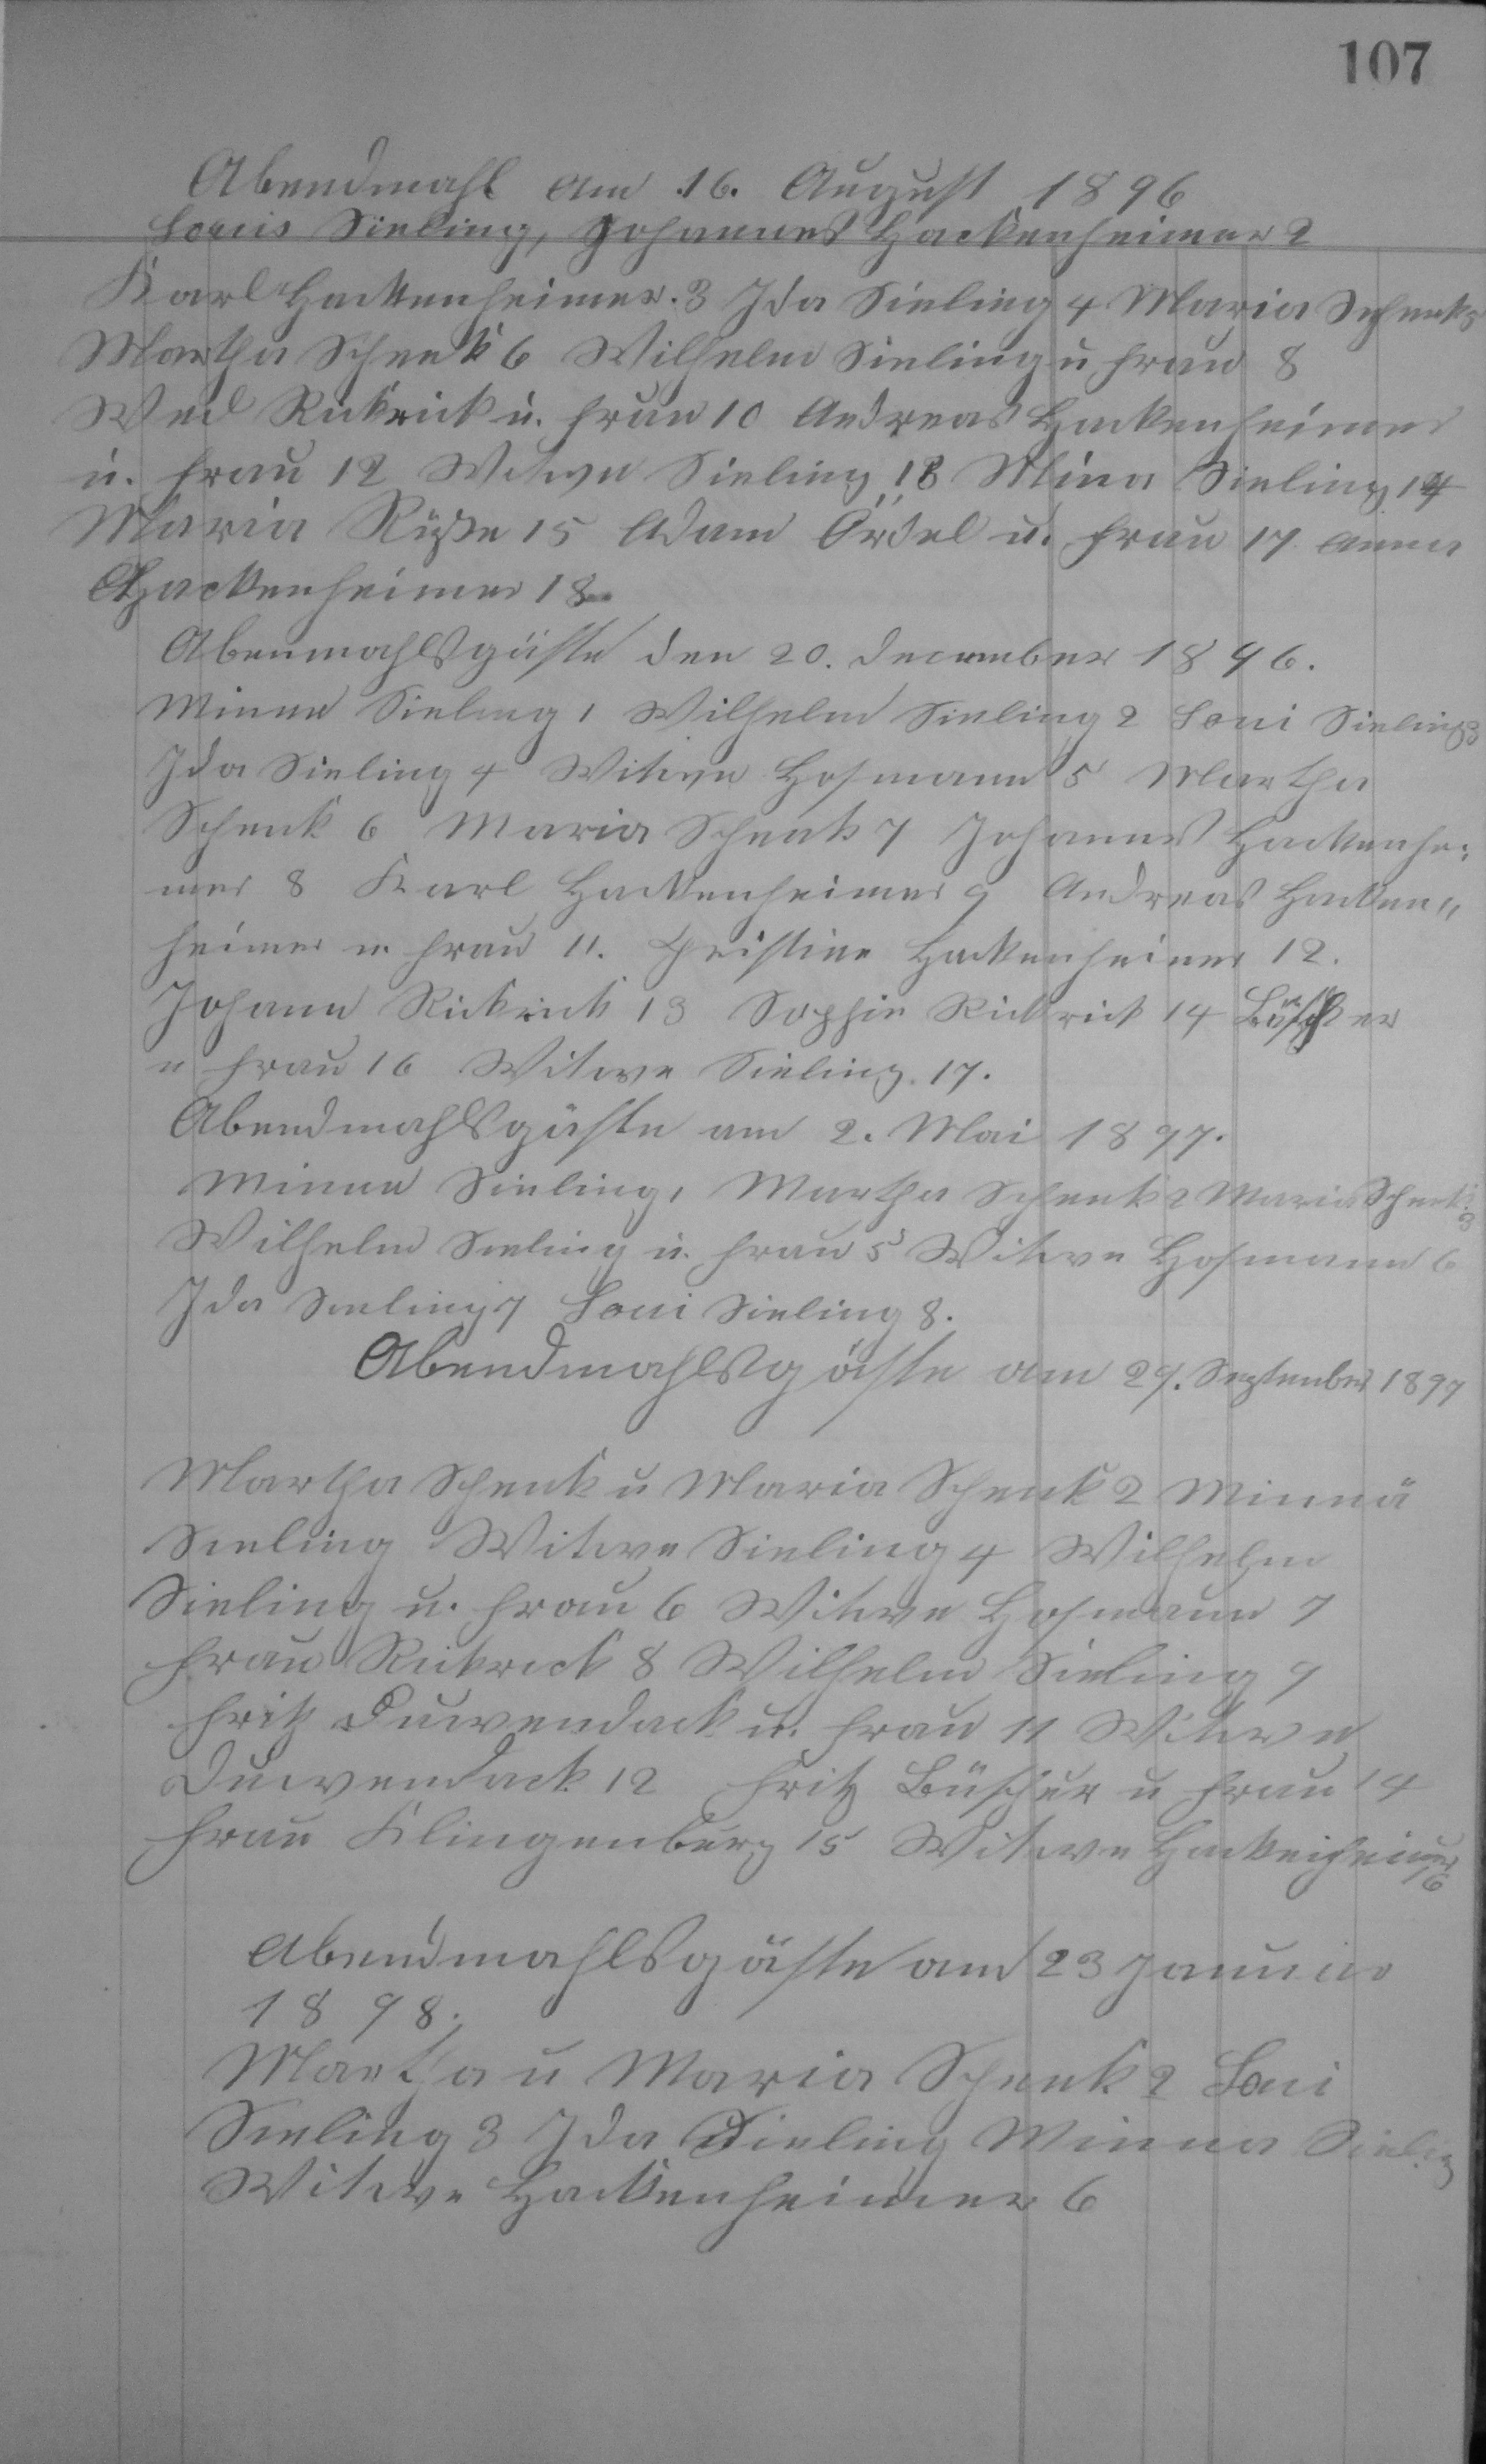 107
Abendmahl am 16. August 1896
Louis Sieling, Johannes Hackenheimer 2
Karl Hackenheimer. 3 Ida Sieling 4 Maria Schenk 5
Martha Schenk 6 Wilhelm Sieling u Frau 8
Rickrick u. Frau 10 Andreas Hackenheimer
u. Frau 12 Witwe Sieling 13 Mina Sieling 14
Maria 15 Adam Ördel u. Frau 17 Anna
Hackenheimer 18.
Abenmahlsgäste den 20. December 1896.
Minna Sieling 1 Wilhelm Sieling 2 Loui Sieling 3
Ida Sieling 4 Witwe Hofmann 5 Martha
Schenk 6 Maria Schenk 7 Johannes Hackenhei:
mer 8 Karl Hackenheimer 9 Andreas Hacken„
heimer u. Frau 11. Christine Hackenheimer 12.
Johann Rickrick 13 Sophie Rickrick 14 Büscher
u Frau 16 Witwe Sieling 17.
Abendmahlsgäste am 2. Mai 1897.
Minna Sieling 1 Martha Schenk 2 Maria Schenk 3
Wilhelm Sieling u. Frau 5 Witwe Hofmann 6
Ida Sieling 7 Loui Sieling 8.
Abendmahlsgäste am 29. September 1897
Martha Schenk u Maria Schenk 2 Minna
Sieling Witwe Sieling 4 Wilhelm
Sieling u. Frau 6 Witwe Hofmann 7
Frau Rickrick 8 Wilhelm Sieling 9
Fritz Duwendack u. Frau 11 Witwe
Duwendack 12 Fritz Büscher u Frau 14
Frau Klingenburg 15 Witwe Hackenheimer 16
Abendmahlsgäste am 23 Januar
1898.
Martha u Maria Schenk 2 Loui
Sieling 3 Ida Sieling Minna Sieling
Witwe Hackenheimer 6